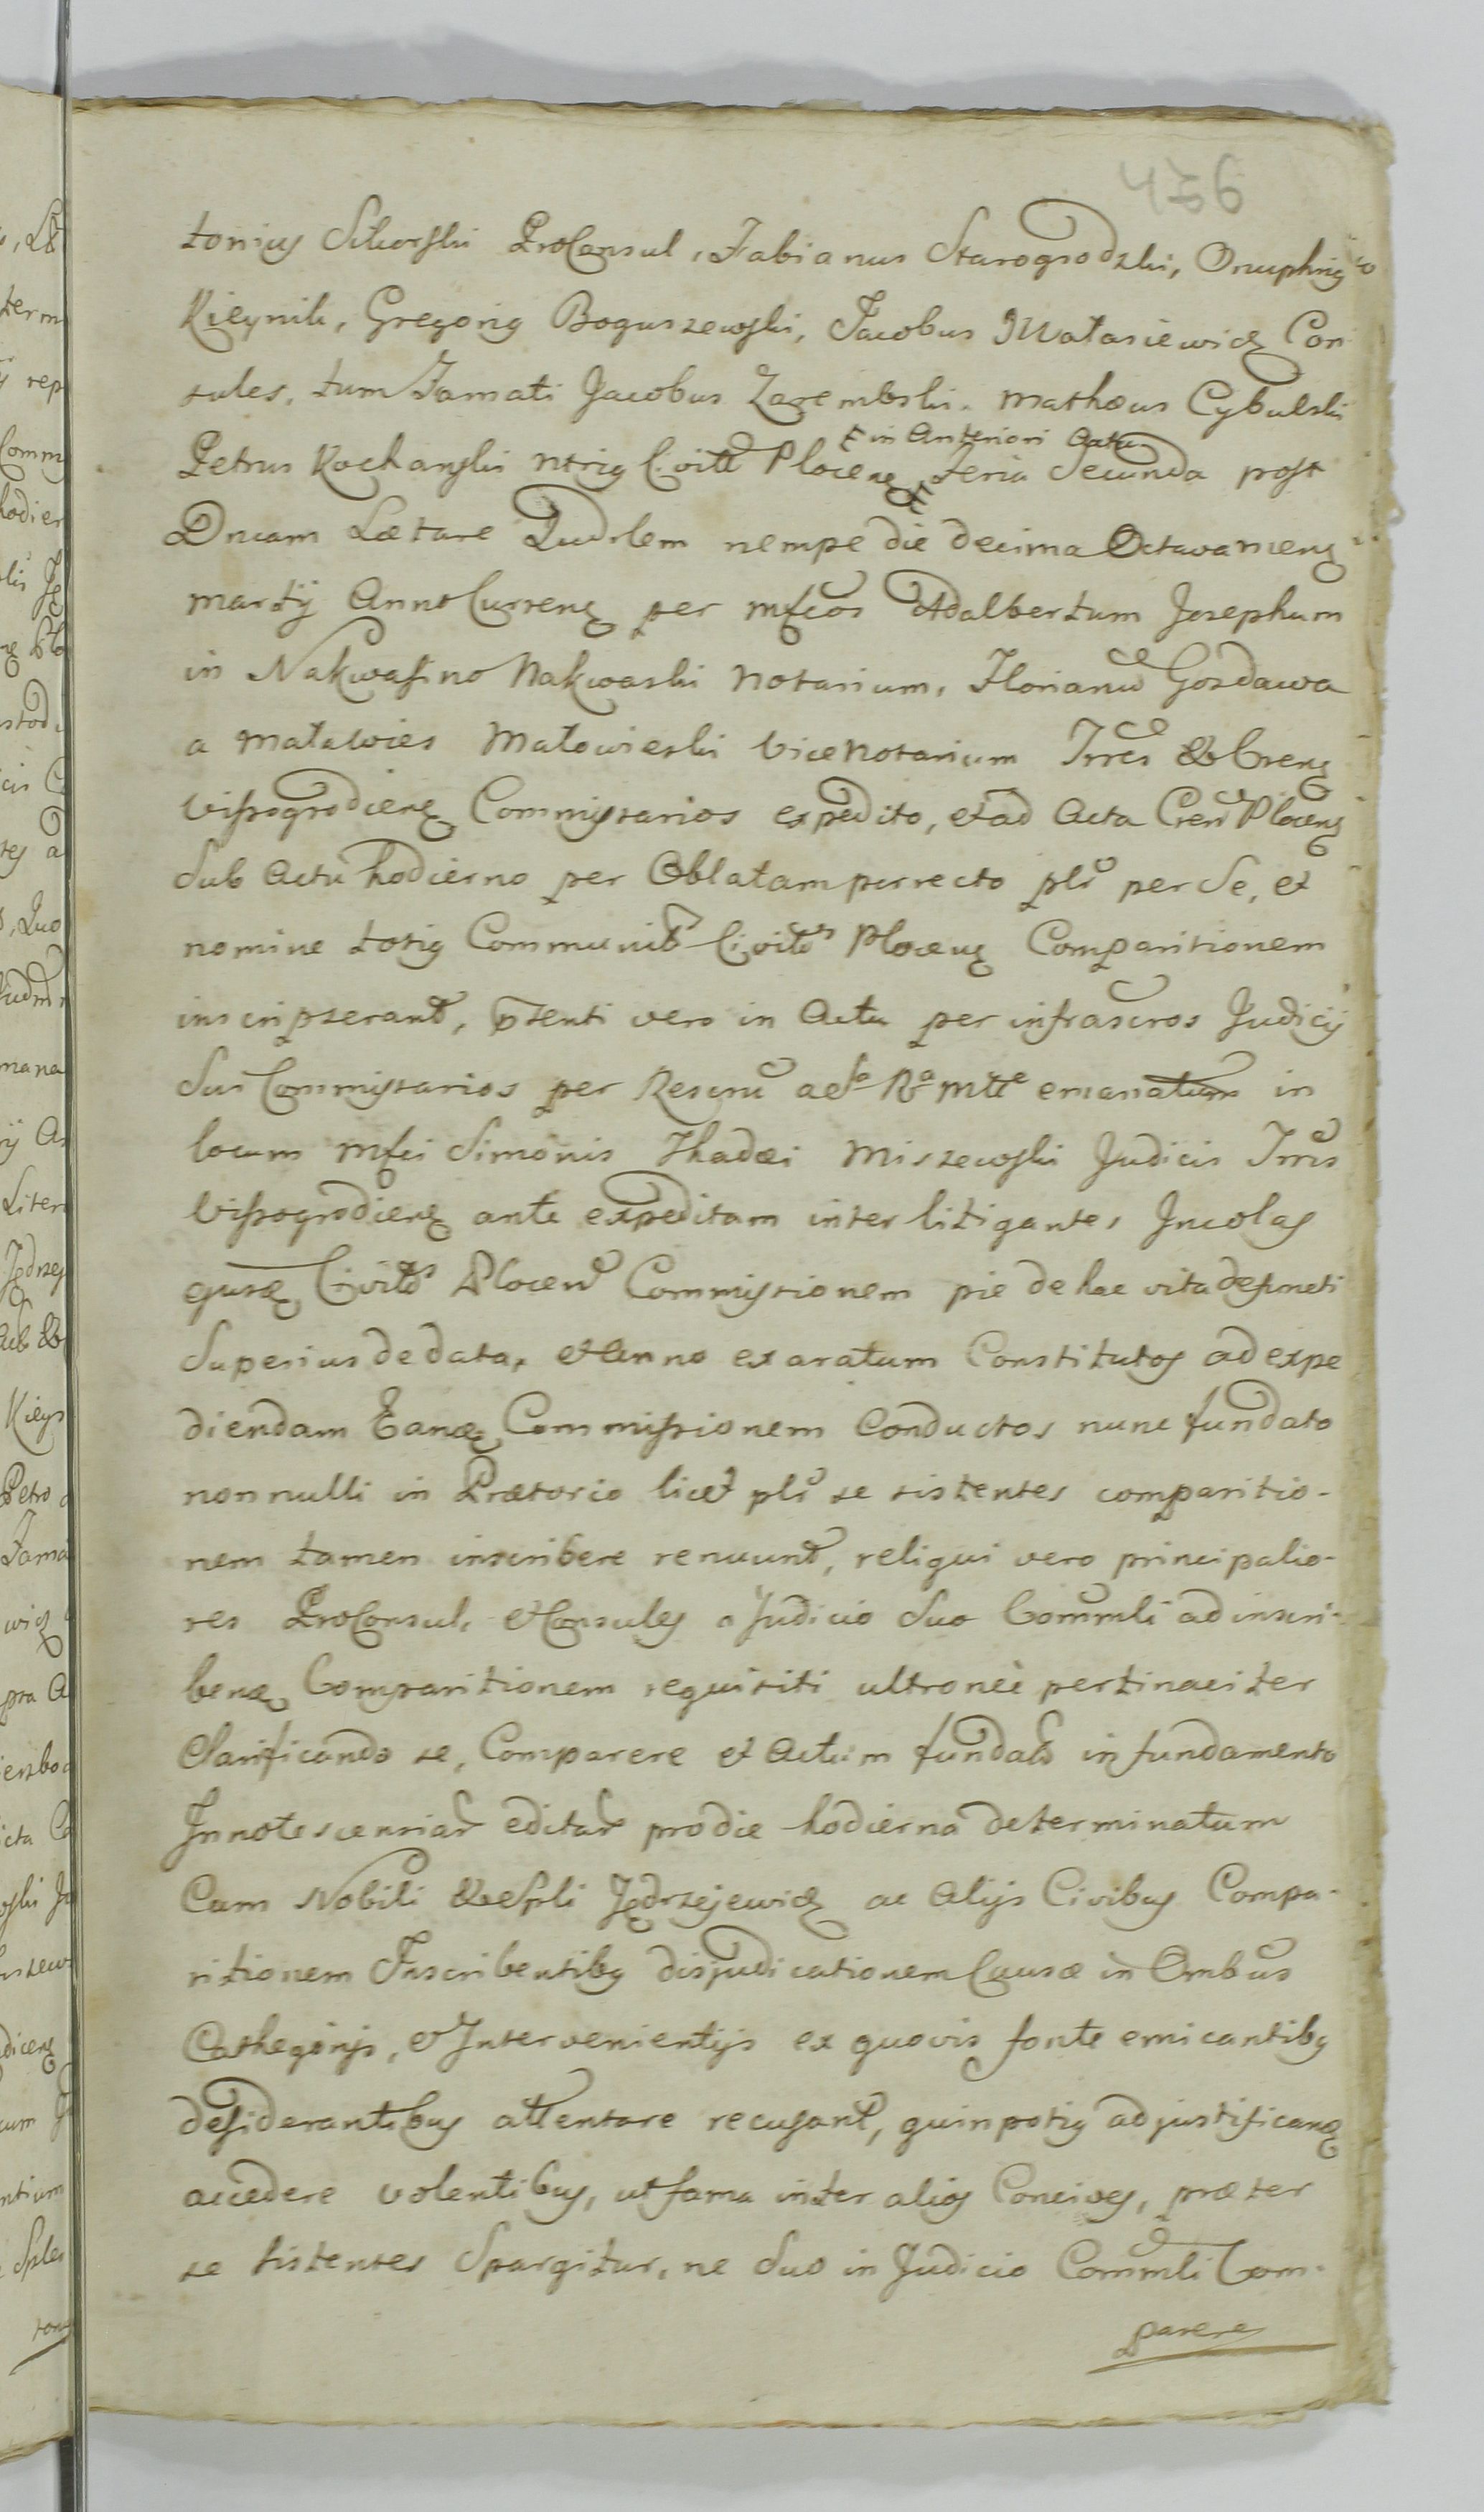 476
tonius Sikorski ProConsul, Fabianus Starogrodzki, Onuphrig
Kieynik, Gregorig Boguszewski, Jacobus Matasiewicz Con
sules, tum Famati Jacobus Zarembski, Matheus Cybulski
in Anteriori Actu
Petrus Kochanski ntrig Civitt Plocens feria Secunda post
Dncam Lætare Qudrlem nempe die decima Octava mens
martij Anno Currens per mfcos Adalbertum Josephum
in Nakwasino Nakwaski Notarium, Florianu Gozdawa
a Matawies Matowieski ViceNotarium Trres & Crens
Vissogrodiens Commissarios expedito, et ad Acta Cren Plocens
Sub Actu hodierno per Oblatam porrecto plr per Se, et
nomine totig Communitt Civitts Plocens Comparitionem
inscripserant, pnti vero in Actu per infrascros Judicij
Sui Commissarios per Rescru a Sa Ra Mtte emanatum in
locum mfci Simonis Thadæi Miszewski Judicis Trris
Vissogrodiens ante expeditam inter litigantes Incolas
ejusq Civitts Plocens Commissionem pie de hac vita defuncti
Superius de data, et Anno exaratum Constitutos ad expe
diendam Eanq Commissionem Conductos nunc fundato
nonnulli in Prætorio licet plr se sistentes comparitio-
nem tamen inscribere renuunt, reliqui vero principalio-
res ProConsul, et Consules a Judicio Suo Commli ad inscri-
benq Comparitionem requisiti ultroneè pertinaciter
Clarificando se, Comparere et Actum fundato in fundamento
Innotescentiar editar pro die hodierna determinatum
Cum Nobili & Espli Jędrzejewicz ac Alijs Civibus Compa-
ritionem Inscribentibq disjudicationem Causæ in Ombus
Cathegorijs, et Intervenientijs ex quovis fonte emicantibq
desiderantibus attentare recusant, quin potiq ad justificanq
accedere volentibus, ut fama inter alios Concives, præter
se sistentes Spargitur, ne Suo in Judicio Commli Com-
parere